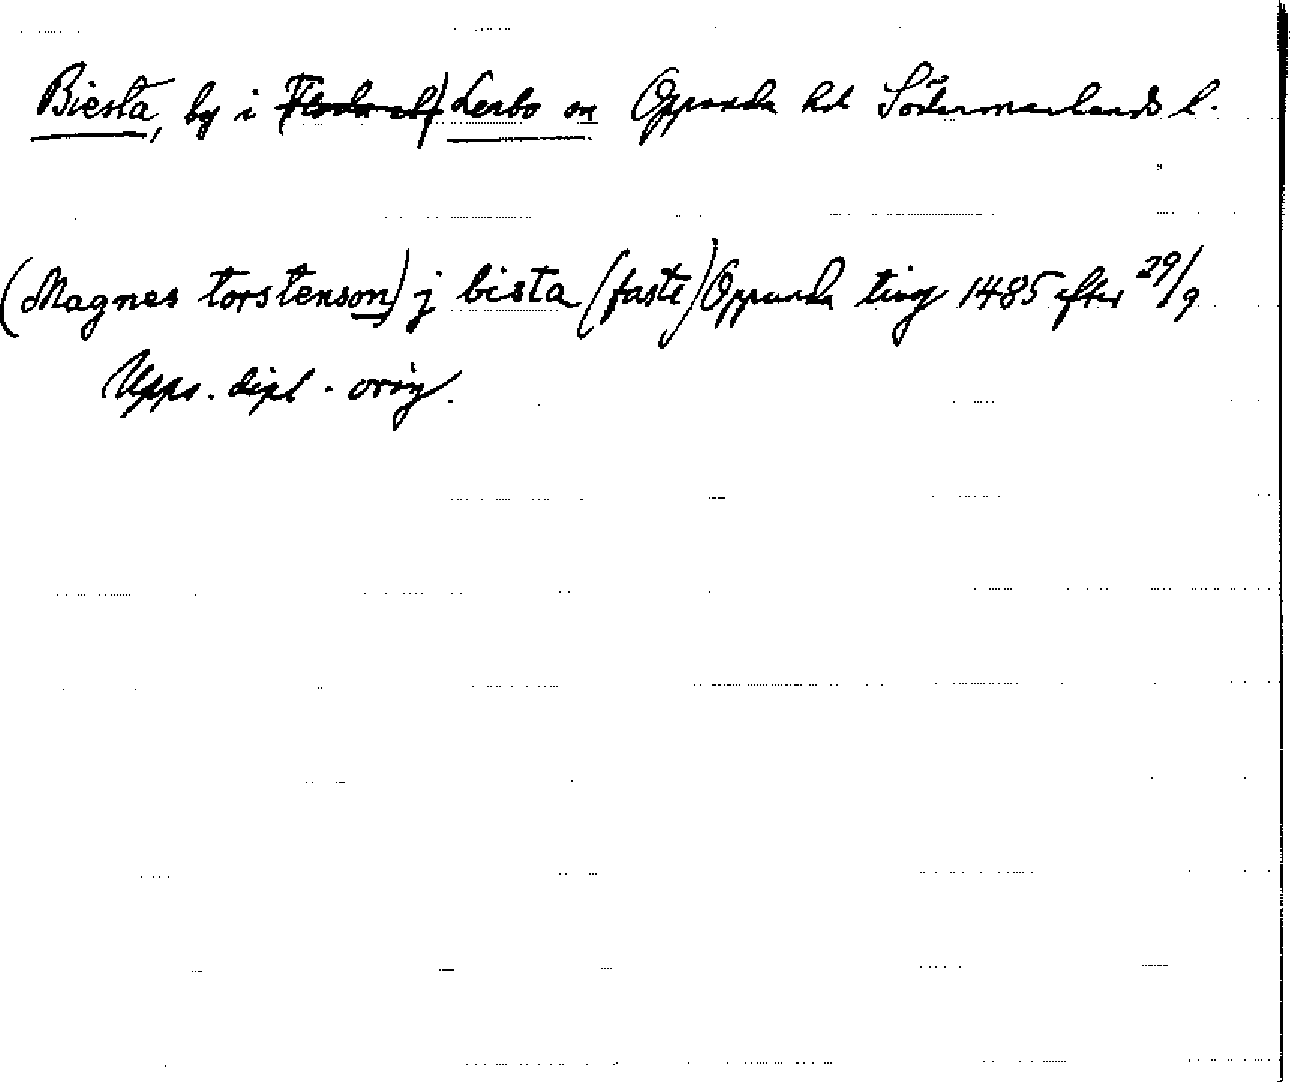 Biesta, by i Lerbo sn Oppunda hd Södermanlands l.
(Magnes torstenson) j bista (faste) Oppunda ting 1485 efter 29/9
Upps. dipl. orig.